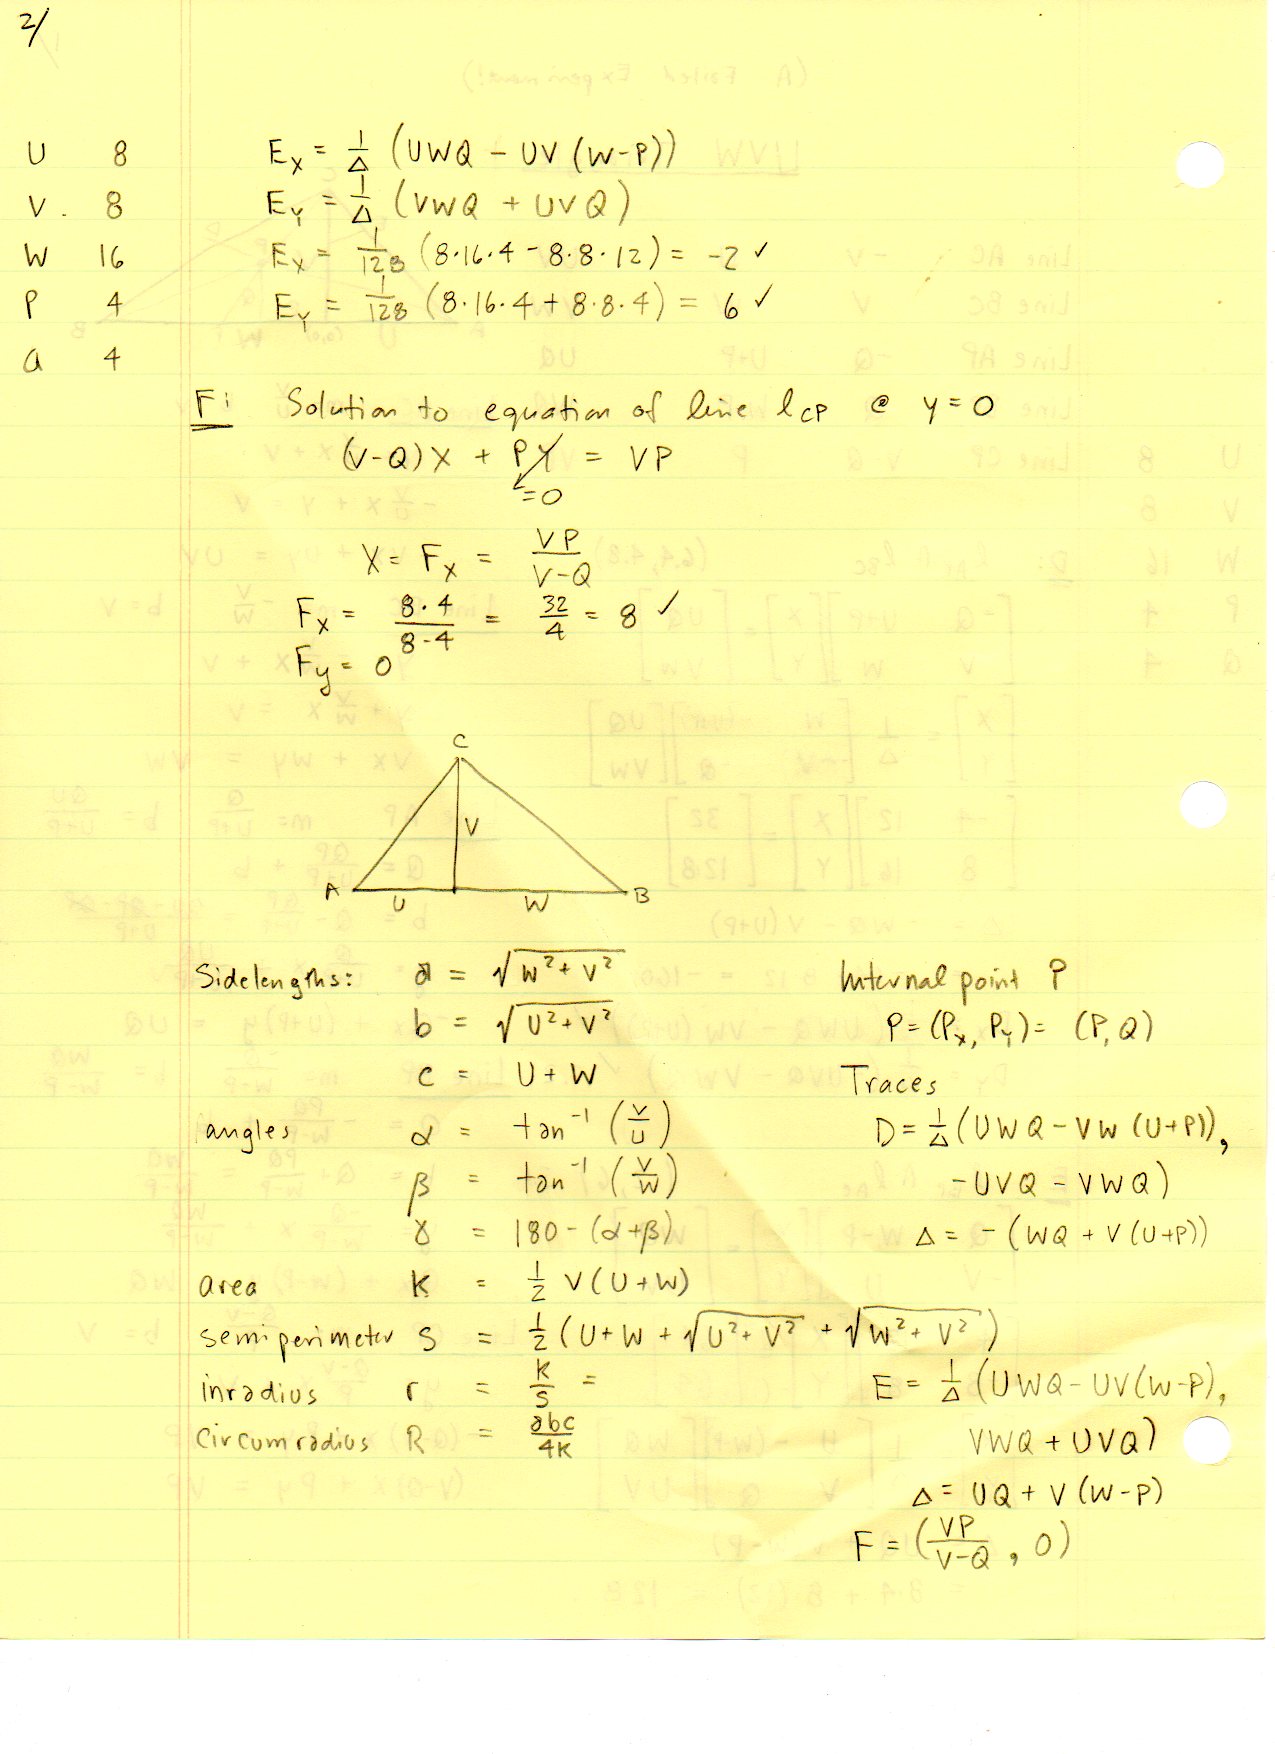 2/
U 8
V. 8
W 16
P 4
Q 4
E_X = 1/Δ (UWQ - UV (W-P))
E_Y = 1/Δ (VWQ + UVQ)
E_X = 1/128 (8·16·4 - 8·8·12) = -2 ✓
E_Y = 1/128 (8·16·4 + 8·8·4) = 6 ✓
F: Solution to equation of line l_CP @ y=0
(V-Q)X + PY = VP
=0
X = F_X = VP/(V-Q)
F_X = (8·4)/(8-4) = 32/4 = 8 ✓
F_y = 0
C
V
A U W B
Sidelengths: a = √(W² + V²)
b = √(U² + V²)
c = U + W
angles α = tan⁻¹ (V/U)
β = tan⁻¹ (V/W)
γ = 180 - (α+β)
area K = 1/2 V(U+W)
semiperimeter S = 1/2 (U+W + √(U²+V²) + √(W²+V²))
inradius r = K/S =
circumradius R = abc/4K
Internal point P
P = (P_X, P_Y) = (P, Q)
Traces
D = 1/Δ (UWQ - VW (U+P)),
-UVQ - VWQ)
Δ = -(WQ + V(U+P))
E = 1/Δ (UWQ - UV(W-P),
VWQ + UVQ)
Δ = UQ + V(W-P)
F = (VP/(V-Q), 0)